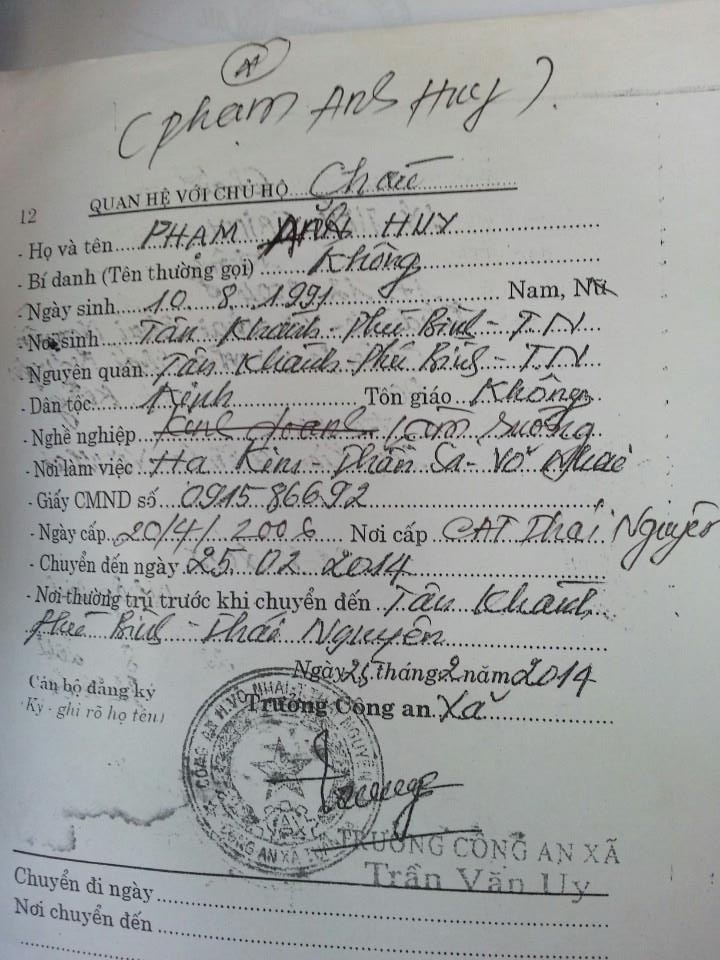 (Phạm Anh Huy).
12 QUAN HỆ VỚI CHỦ HỘ Cháu
- Họ và tên PHẠM ANH HUY
- Bí danh (Tên thường gọi) Không
- Ngày sinh 10.8.1991 Nam, Nữ
- Nơi sinh Tân Khánh - Phú Bình - TN
- Nguyên quán Tân Khánh - Phú Bình - TN
- Dân tộc Kinh Tôn giáo Không
- Nghề nghiệp Làm ruộng
- Nơi làm việc Hạ Kim - Phần Sa - Võ Nhai
- Giấy CMND số 091586692
- Ngày cấp 20/4/2006 Nơi cấp CAT Thái Nguyên
- Chuyển đến ngày 25.02.2014
- Nơi thường trú trước khi chuyển đến Tân Khánh
Phú Bình - Thái Nguyên
Ngày 25 tháng 2 năm 2014
Cán bộ đăng ký
(Ký - ghi rõ họ tên)
Trưởng Công an Xã
CÔNG AN H.VÕ NHAI-T. NGUYÊN
CÔNG AN XÃ
TRƯỞNG CÔNG AN XÃ
Trần Văn Uy
Chuyển đi ngày
Nơi chuyển đến